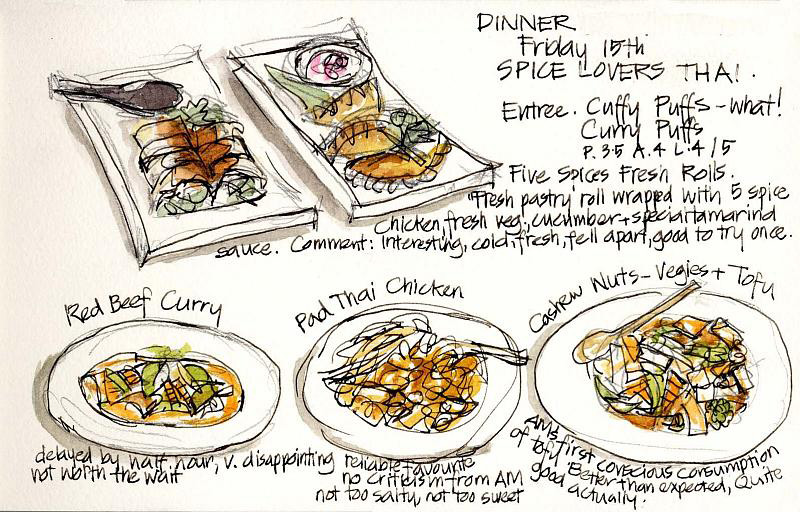 DINNER
Friday 15th
SPICE LOVERS THAI.
Entree. Cuffy Puffs - what!
Curry Puffs
P. 3.5 A. 4 L. 4/5
Five Spices Fresh Rolls.
"Fresh pastry roll wrapped with 5 spice
Chicken, fresh veg, cucumber + special tamarind
sauce. Comment: Interesting, cold, fresh, fell apart, good to try once.
Red Beef Curry
delayed by half hour, v. disappointing
not worth the wait
Pad Thai Chicken
reliable favourite
no criticism from AM
not too salty, not too sweet
Cashew Nuts - Vegies + Tofu
AM's first conscious consumption
of tofu 'Better than expected, Quite
good actually.'